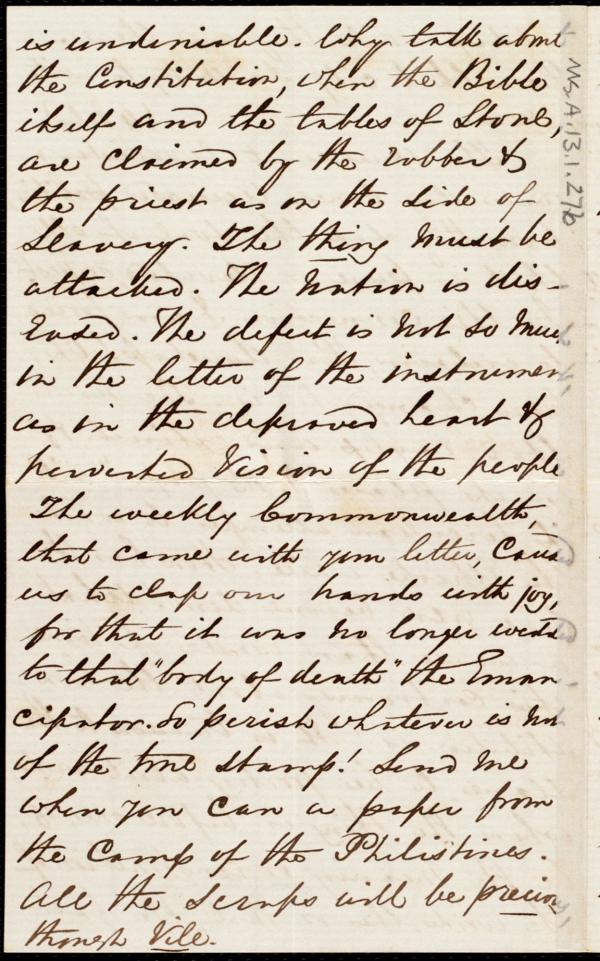 is undeniable. Why talk about
the Constitution, when the Bible
itself and the tables of Stone,
are claimed by the robber &
the priest as on the side of
Slavery. The thing must be
attacked. The Nation is dis-
eased. The defect is not so muc
in the letter of the instrumen
as in the depraved heart &
perverted vision of the people
The weekly Commonwealth,
that came with your letter, Caus
us to clap our hands with joy,
for that it was no longer wedd
to that "body of death" the Eman
cipator. So perish whatever is no
of the true stamp! Send me
when you can a paper from
the Camp of the Philistines.
All the scraps will be precious
though Vile.
Ms. A. 13.1.27b